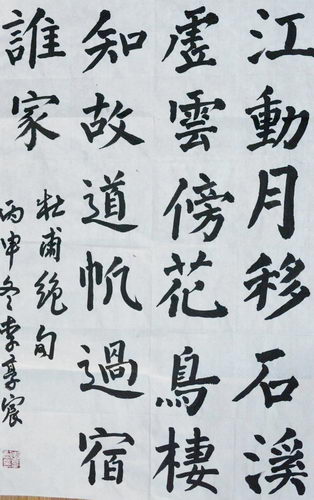 江動月移石溪
虛雲傍花鳥棲
知故道帆過宿
誰家
杜甫絕句
丙申冬李享宸